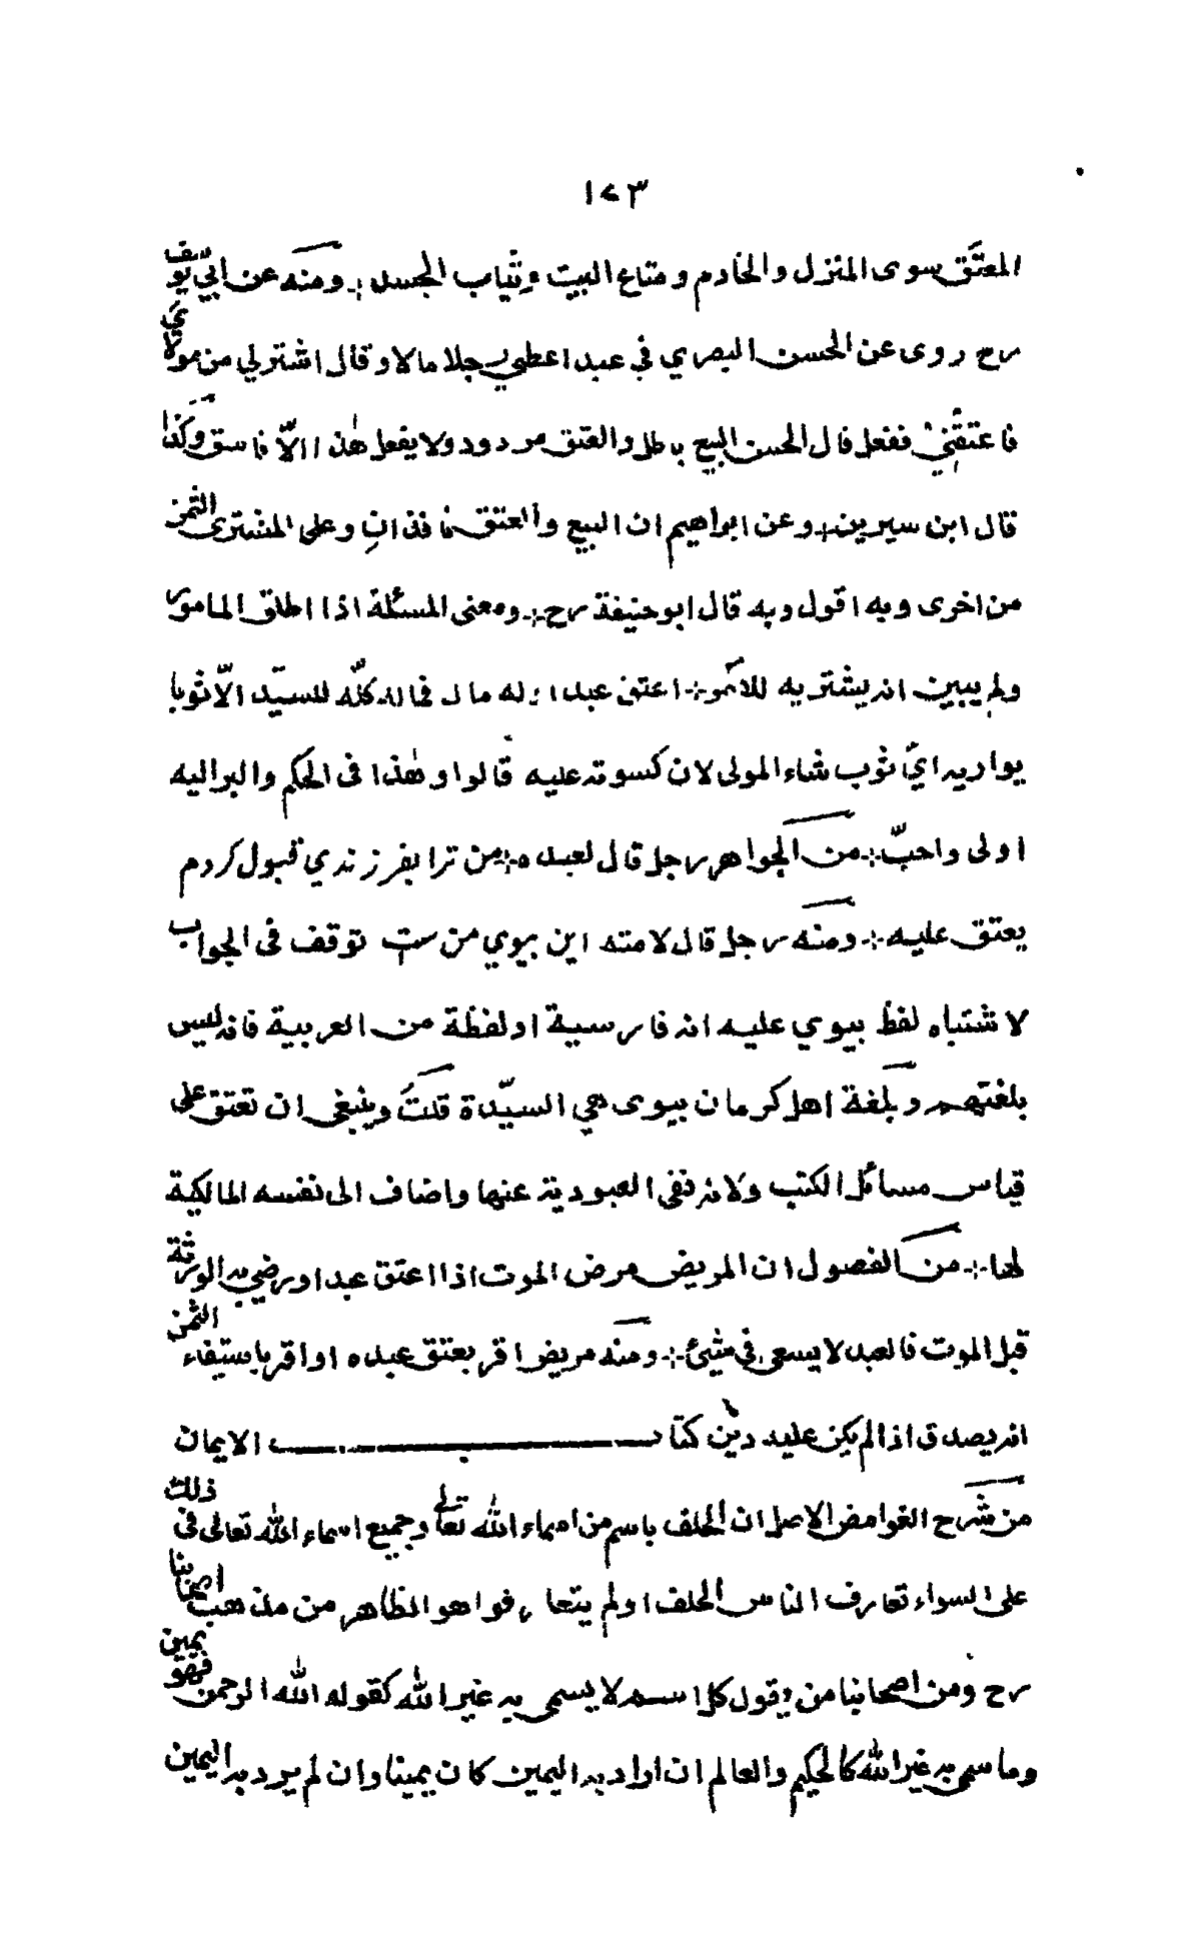 ١٧٣
المعتَق سوى المنزل والخادم ومتاع البيت وثياب الجسد ؞ ومنه عن ابي يوسف
رح روى عن الحسن البصري في عبد اعطى رجلا مالا وقال اشترلي من مولاي
فاعتقني ففعل قال الحسن البيع باطل والعتق مردود ولا يفعل هذا الّا فاسق وكذا
قال ابن سيرين ؞ وعن ابراهيم ان البيع والعتق نافذان وعلى المشترى الثمن
من اخرى وبه اقول وبه قال ابو حنيفة رح ؞ ومعنى المسئلة اذا اطلق المامور
ولم يبين انه يشتريه للآمر ؞ اعتق عبدا وله مال فماله كلّه للسيّد الّا ثوبا
يواريه ايّ ثوب شاء المولى لان كسوته عليه قالوا وهذا فى الحكم والبر اليه
اولى واحبّ ؞ من الجواهر رجل قال لعبده ؞ من ترا بفرزندي قبول كردم
يعتق عليه ؞ ومنه رجل قال لامته اين بيوي من ست توقف فى الجواب
لاشتباه لفظ بيوي عليه انه فارسية او لفظة من العربية فانه ليس
بلغتهم وبلغة اهل كرمان بيوى هي السيّدة قلت وينبغى ان تعتق على
قياس مسائل الكتب ولانه نفى العبودية عنها واضاف الى نفسه المالكية
لها ؞ من الفصول ان المريض مرض الموت اذا اعتق عبدا ورضي به الورثة
قبل الموت فالعبد لا يسعى في شئ ؞ ومنه مريض اقر بعتق عبده او اقر باستيفاء الثمن
انه يصدق اذا لم يكن عليه دين كتاب الايمان
من شرح الغوامض الاصل ان الحلف باسم من اسماء الله تعالى وجميع اسماء الله تعالى فى ذلك
على السواء تعارف الناس الحلف او لم يتعارفوا هو الظاهر من مذهب اصحابنا
رح ومن اصحابنا من يقول كل اسم لا يسمى به غير الله كقوله الله الرحمن فهو يمين
وما سمى به غير الله كالحكيم والعالم ان اراد به اليمين كان يمينا وان لم يرد به اليمين